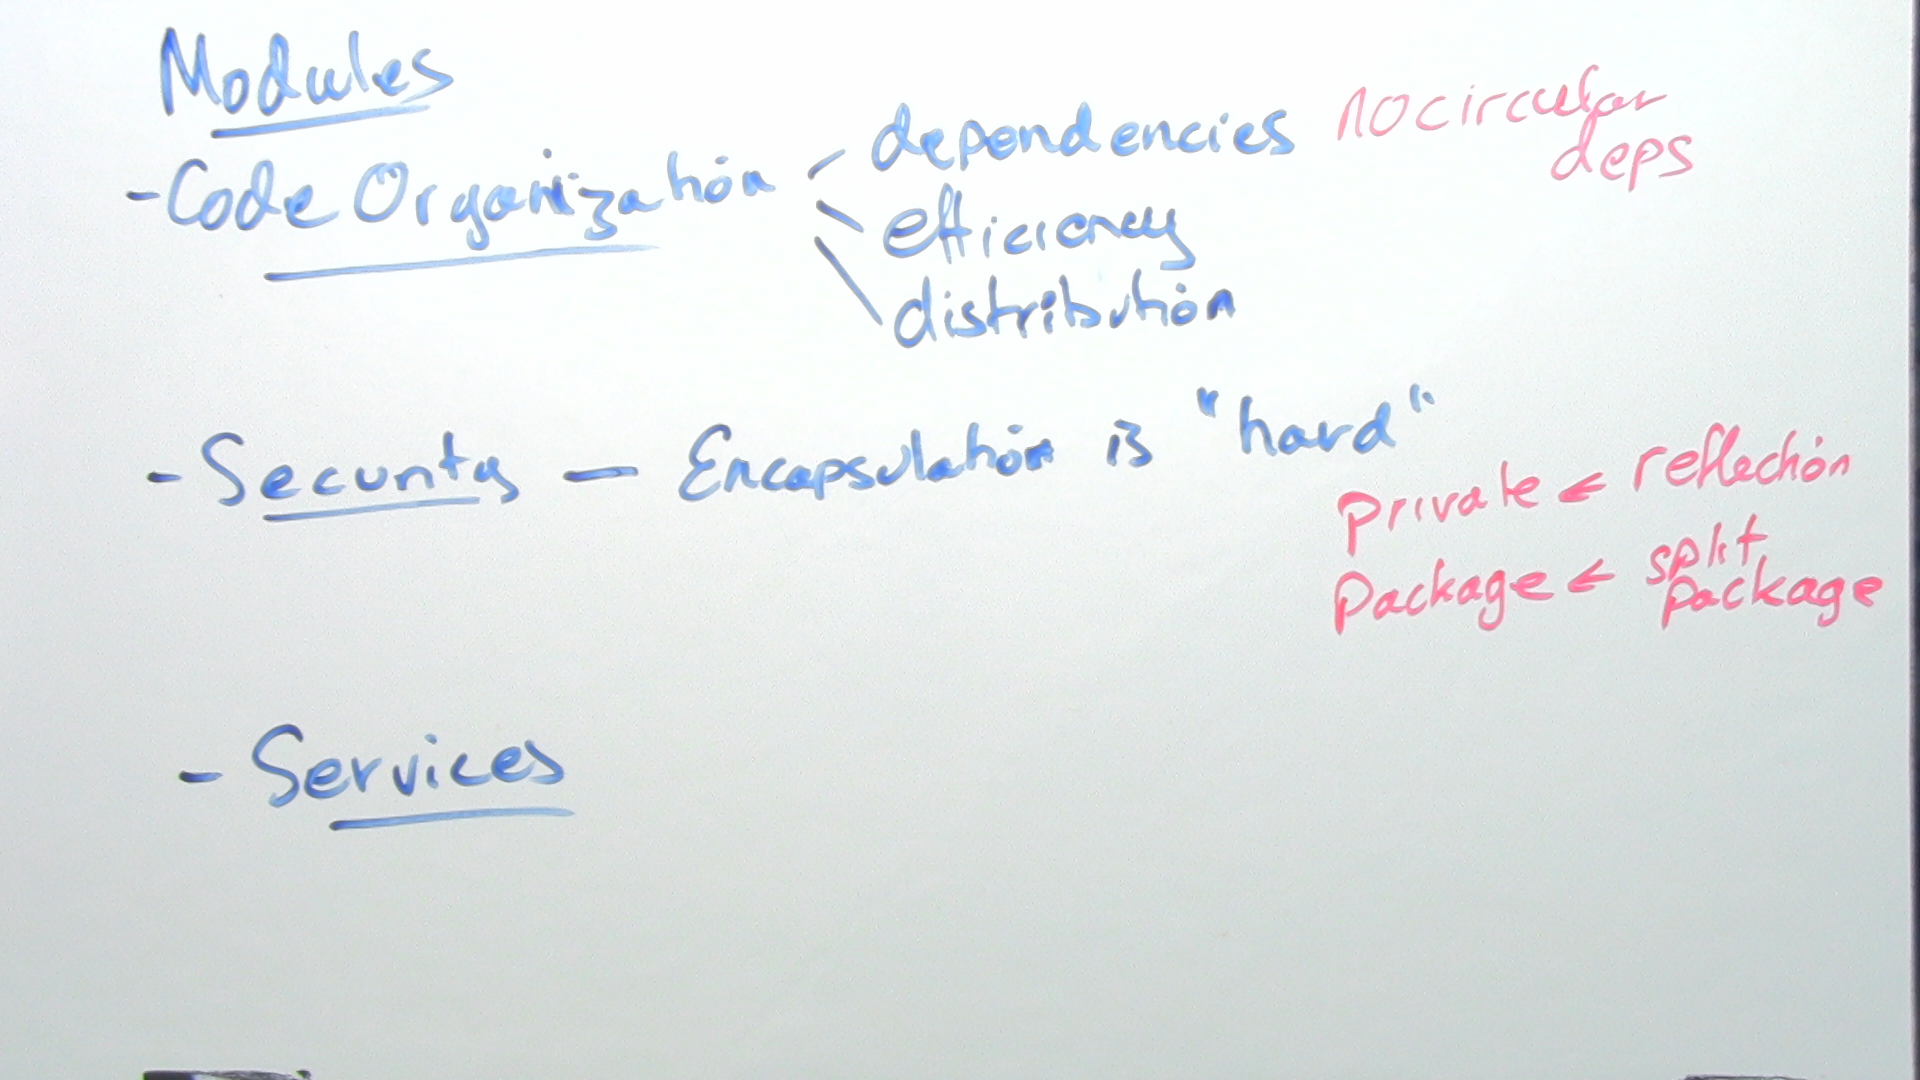 Modules
- Code Organization
dependencies
no circular
deps
efficiency
distribution
- Security — Encapsulation is "hard"
private ← reflection
package ← split
package
- Services